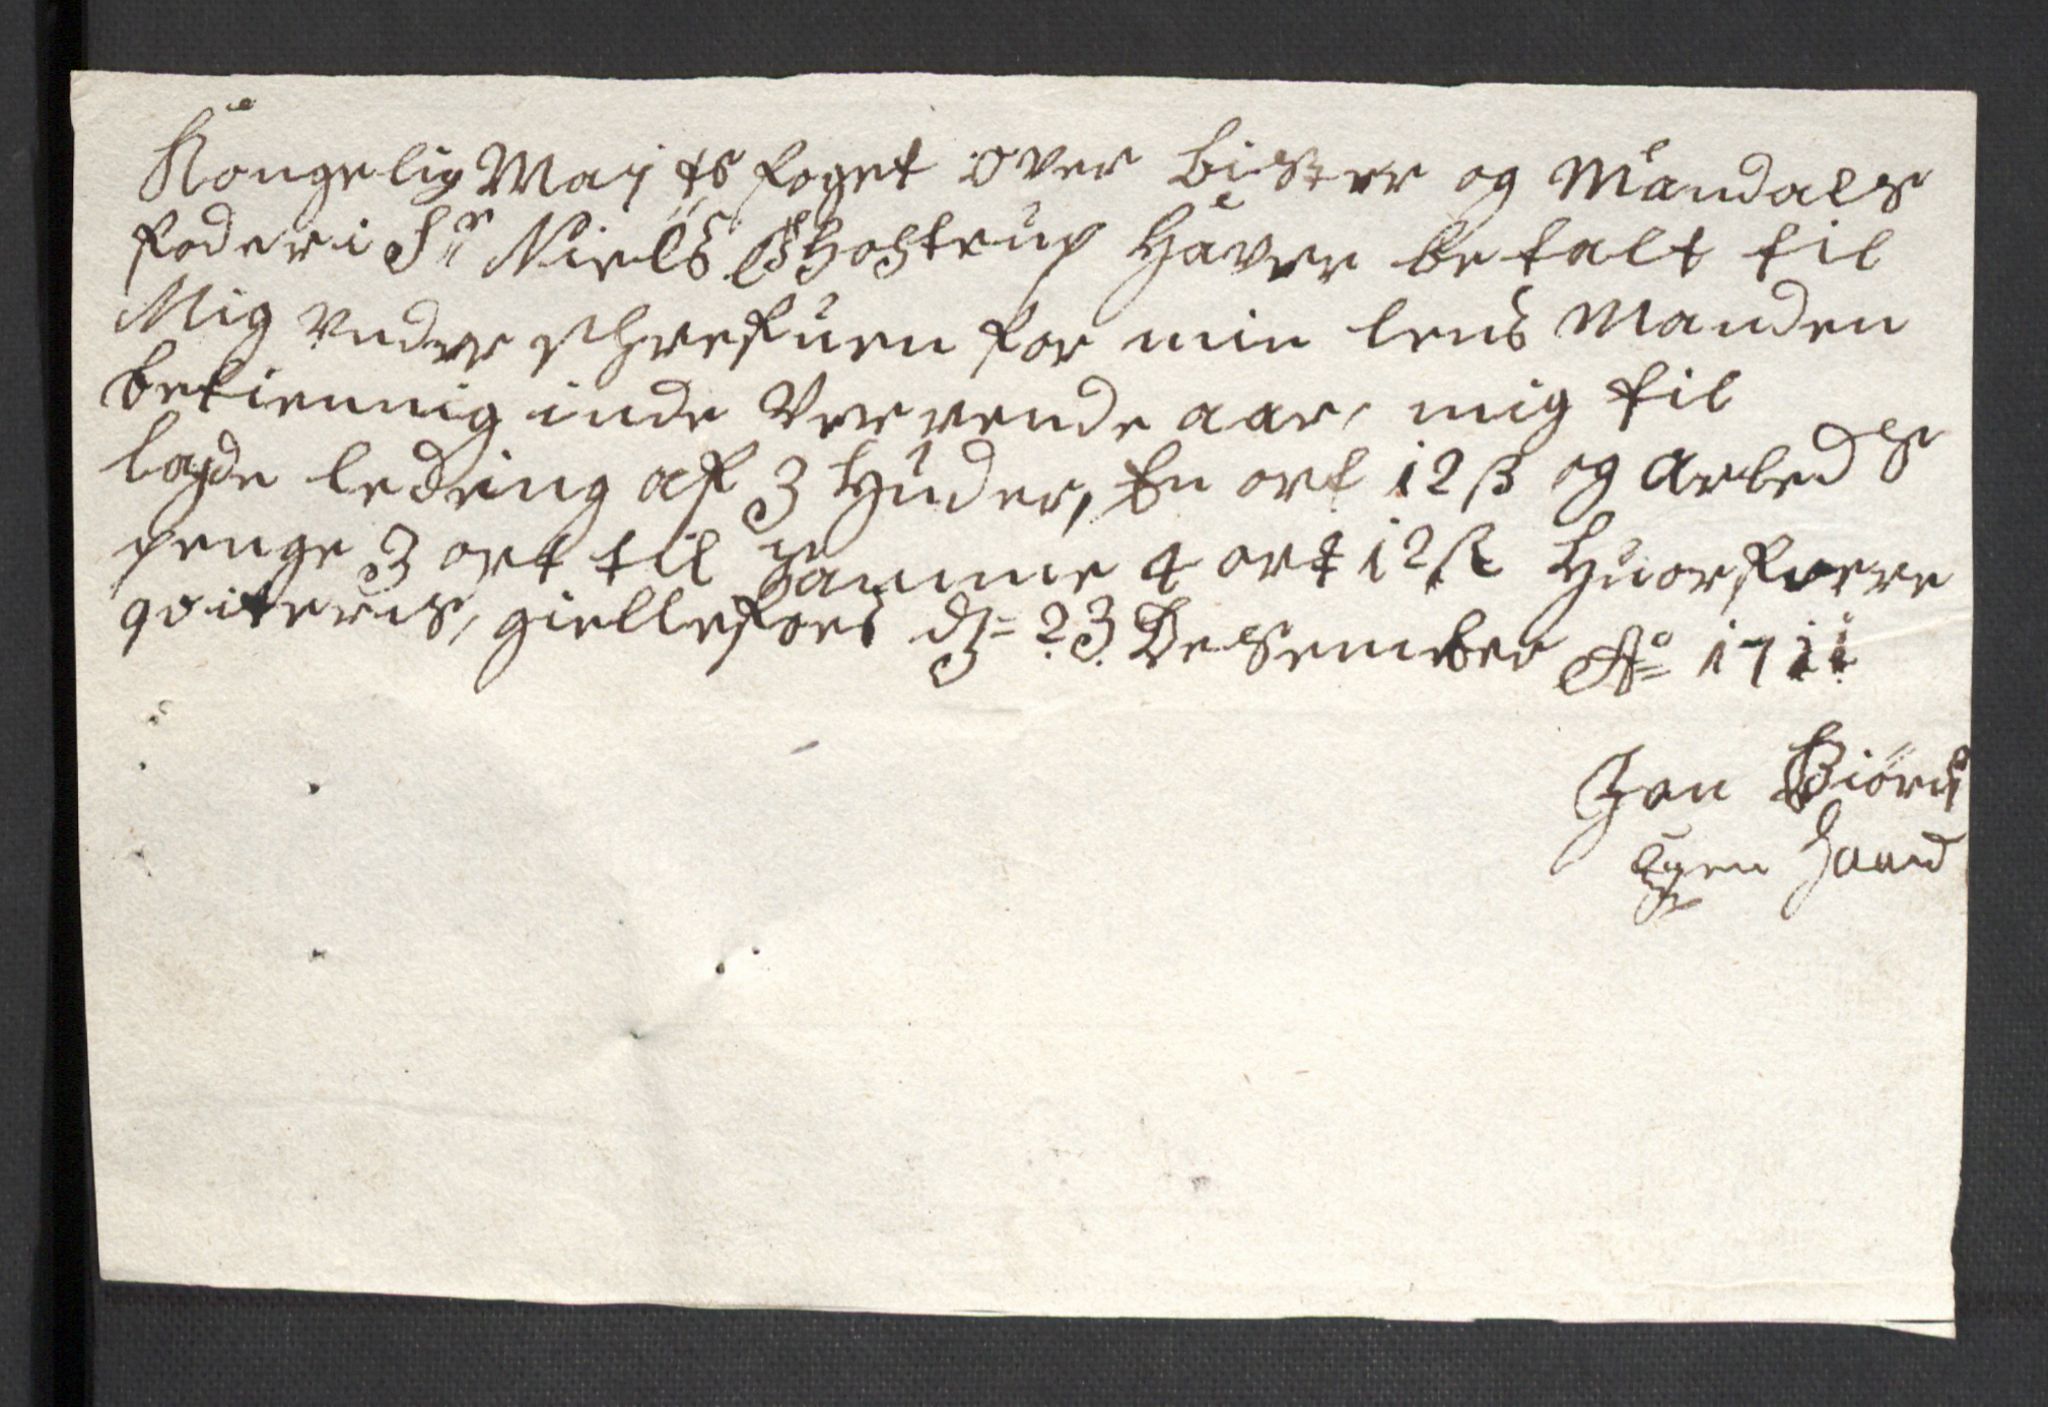 Kongelig Maÿtß foget over Lister og Mandals
foderi Sr Niels Thostrup Haver betalt til
Mig vnder schrefuen for min lens Manden
bekiennig inde verrende aar, mig til
lagde ledring af 3 Huder, En ort 12 ß og Arbeds
penge 3 ort til samme 4 ort 12 ß Huorfuere
qviteris, giellefoes dn= 23 Desember Ao 1711
Jan Biørn
Egen Haand